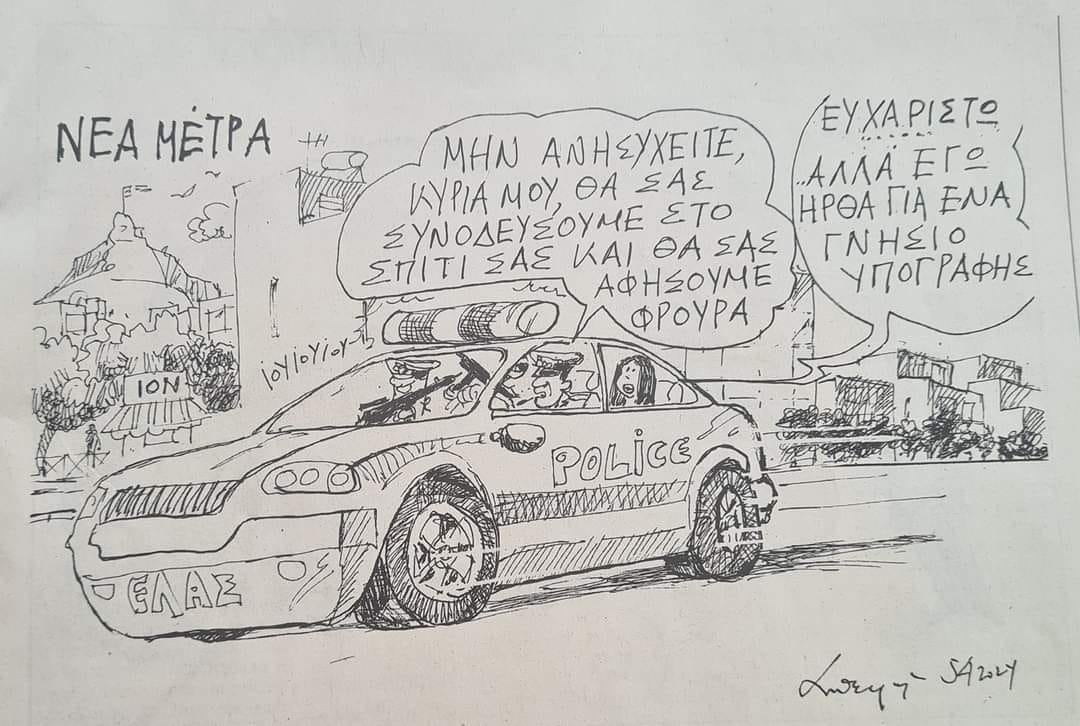 ΝΕΑ ΜΕΤΡΑ
ΜΗΝ ΑΝΗΣΥΧΕΙΤΕ,
ΚΥΡΙΑ ΜΟΥ, ΘΑ ΣΑΣ
ΣΥΝΟΔΕΥΣΟΥΜΕ ΣΤΟ
ΣΠΙΤΙ ΣΑΣ ΚΑΙ ΘΑ ΣΑΣ
ΑΦΗΣΟΥΜΕ
ΦΡΟΥΡΑ
ΕΥΧΑΡΙΣΤΩ
..ΑΛΛΑ ΕΓΩ
ΗΡΘΑ ΓΙΑ ΕΝΑ
ΓΝΗΣΙΟ
ΥΠΟΓΡΑΦΗΣ
ΙΟΥΙΟΥΙΟΥ
ΙΟΝ
POLiCE
ΕΛΑΣ